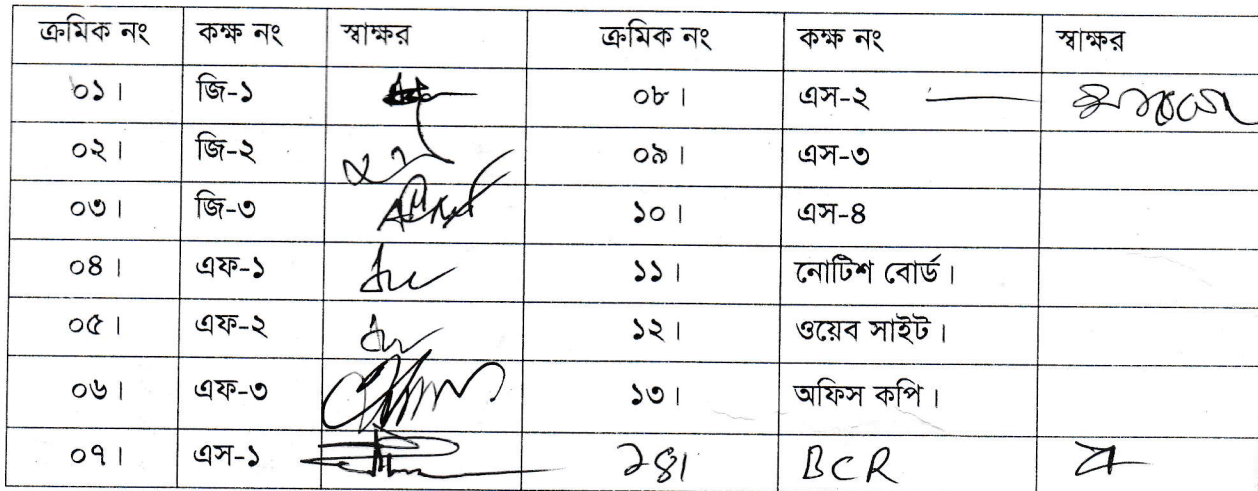 ক্রমিক নং কক্ষ নং স্বাক্ষর ক্রমিক নং কক্ষ নং স্বাক্ষর
০১। জি-১ ০৮। এস-২
০২। জি-২ ০৯। এস-৩
০৩। জি-৩ ১০। এস-৪
০৪। এফ-১ ১১। নোটিশ বোর্ড।
০৫। এফ-২ ১২। ওয়েব সাইট।
০৬। এফ-৩ ১৩। অফিস কপি।
০৭। এস-১ ১৪। BCR